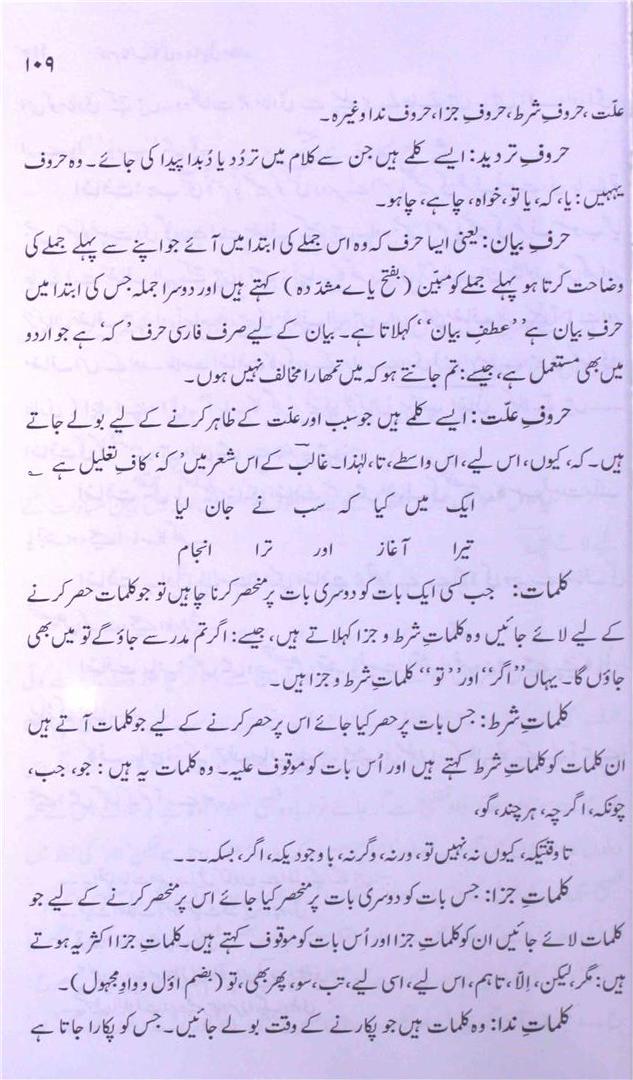 ۱۰۹
علّت، حروفِ شرط، حروفِ جزا، حروف ندا وغیرہ۔
حروفِ تردید: ایسے کلمے ہیں جن سے کلام میں تردُد یا دُبدا پیدا کی جائے۔ وہ حروف
یہ ہیں: یا، کہ، یا تو، خواہ، چاہے، چاہو۔
حرفِ بیان: یعنی ایسا حرف کہ وہ اس جملے کی ابتدا میں آئے جو اپنے سے پہلے جملے کی
وضاحت کرتا ہو پہلے جملے کو مبیّن (بفتح یاے مشدّدہ) کہتے ہیں اور دوسرا جملہ جس کی ابتدا میں
حرفِ بیان ہے ”عطفِ بیان“ کہلاتا ہے۔ بیان کے لیے صرف فارسی حرف ’کہ‘ ہے جو اردو
میں بھی مستعمل ہے، جیسے: تم جانتے ہو کہ میں تمھارا مخالف نہیں ہوں۔
حروفِ علّت: ایسے کلمے ہیں جو سبب اور علّت کے ظاہر کرنے کے لیے بولے جاتے
ہیں۔ کہ، کیوں، اس لیے، اس واسطے، تا، لہٰذا۔ غالبؔ کے اس شعر میں ’کہ‘ کافِ تعلیل ہے ؎
ایک میں کیا کہ سب نے جان لیا
تیرا آغاز اور ترا انجام
کلمات: جب کسی ایک بات کو دوسری بات پر منحصر کرنا چاہیں تو جو کلمات حصر کرنے
کے لیے لائے جائیں وہ کلماتِ شرط و جزا کہلاتے ہیں، جیسے: اگر تم مدرسے جاؤ گے تو میں بھی
جاؤں گا۔ یہاں ”اگر“ اور ”تو“ کلماتِ شرط و جزا ہیں۔
کلماتِ شرط: جس بات پر حصر کیا جائے اس پر حصر کرنے کے لیے جو کلمات آتے ہیں
ان کلمات کو کلماتِ شرط کہتے ہیں اور اُس بات کو موقوف علیہ۔ وہ کلمات یہ ہیں: جو، جب،
چونکہ، اگرچہ، ہر چند، گو،
تا وقتیکہ، کیوں نہ، نہیں تو، ورنہ، وگرنہ، با وجودیکہ، اگر، بسکہ۔۔۔
کلماتِ جزا: جس بات کو دوسری بات پر منحصر کیا جائے اس پر منحصر کرنے کے لیے جو
کلمات لائے جائیں ان کو کلماتِ جزا اور اُس بات کو موقوف کہتے ہیں۔ کلماتِ جزا اکثر یہ ہوتے
ہیں: مگر، لیکن، اِلّا، تاہم، اس لیے، اسی لیے، تب، سو، پھر بھی، تو (بضم اوّل و واوِ مجہول)۔
کلماتِ ندا: وہ کلمات ہیں جو پکارنے کے وقت بولے جائیں۔ جس کو پکارا جاتا ہے